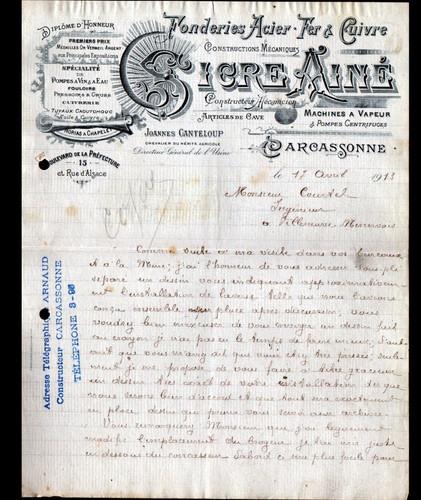 DIPLÔME D'HONNEUR
PREMIERS PRIX
MÉDAILLES OR VERMEIL ARGENT
aux Principales Expositions
SPÉCIALITÉ
DE
POMPES À VIN & À EAU
FOULOIRS
PRESSOIRS & GRUES
CUIVRERIE
TUYAUX CAOUTCHOUC
Toile & Cuivre
NORIAS À CHAPELET
BOULEVARD DE LA PRÉFECTURE
15
et Rue d'Alsace
Fonderies Acier Fer & Cuivre
CONSTRUCTIONS MÉCANIQUES
SICRE AINÉ
Constructeur Mécanicien
ARTICLES DE CAVE
MACHINES A VAPEUR
& POMPES CENTRIFUGES
JOANNES CANTELOUP
CHEVALIER DU MÉRITE AGRICOLE
Directeur Général de l'Usine
CARCASSONNE
le 17 Avril 1913
Monsieur
Ingénieur
à Villeneuve Minervois
Adresse Télégraphique ARNAUD
Constructeur CARCASSONNE
TÉLÉPHONE 3-98
Comme suite à ma visite dans vos bureaux
et à la Mine; j'ai l'honneur de vous adresser sous pli
séparé un dessin vous indiquant approximative
ment l'installation de laverie telle que nous l'avions
conçue ensemble sur place après discussion; vous
voudrez bien m'excuser de vous envoyer un dessin fait
au crayon je n'ai pas eu le temps de faire mieux; d'autant
que vous m'avez dit que vous étiez très pressé; seule
ment je me propose de vous faire à titre gracieux
un dessin très exact de votre installation dès que
nous serons bien d'accord et que tout sera exactement
en place dessin qui pourra vous servir aux archives.
Vous remarquerez Monsieur que j'ai légèrement
modifié l'emplacement du broyeur je l'ai mis juste
en dessous du concasseur d'abord c'est plus facile pour